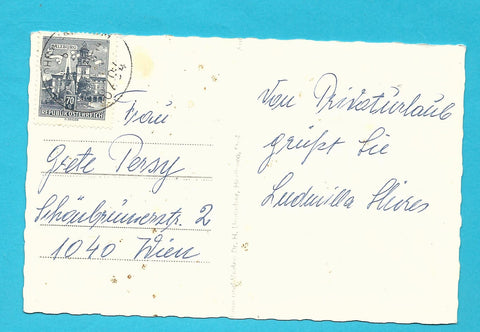 SALZBURG
70
REPUBLIK ÖSTERREICH
Frau
Grete Persy
Schönbrunnerstr. 2
1040 Wien
Von Privaturlaub
grüßt Sie
Ludmilla